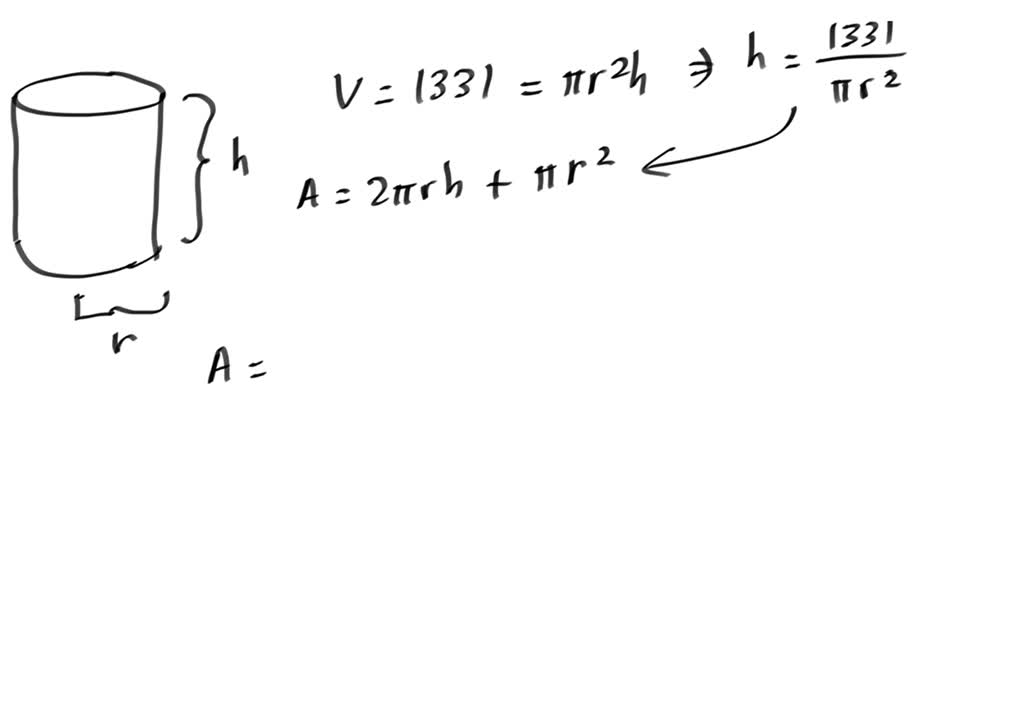 V = 1331 = πr²h ⇒ h = 1331/πr²
h
A = 2πrh + πr²
r
A =